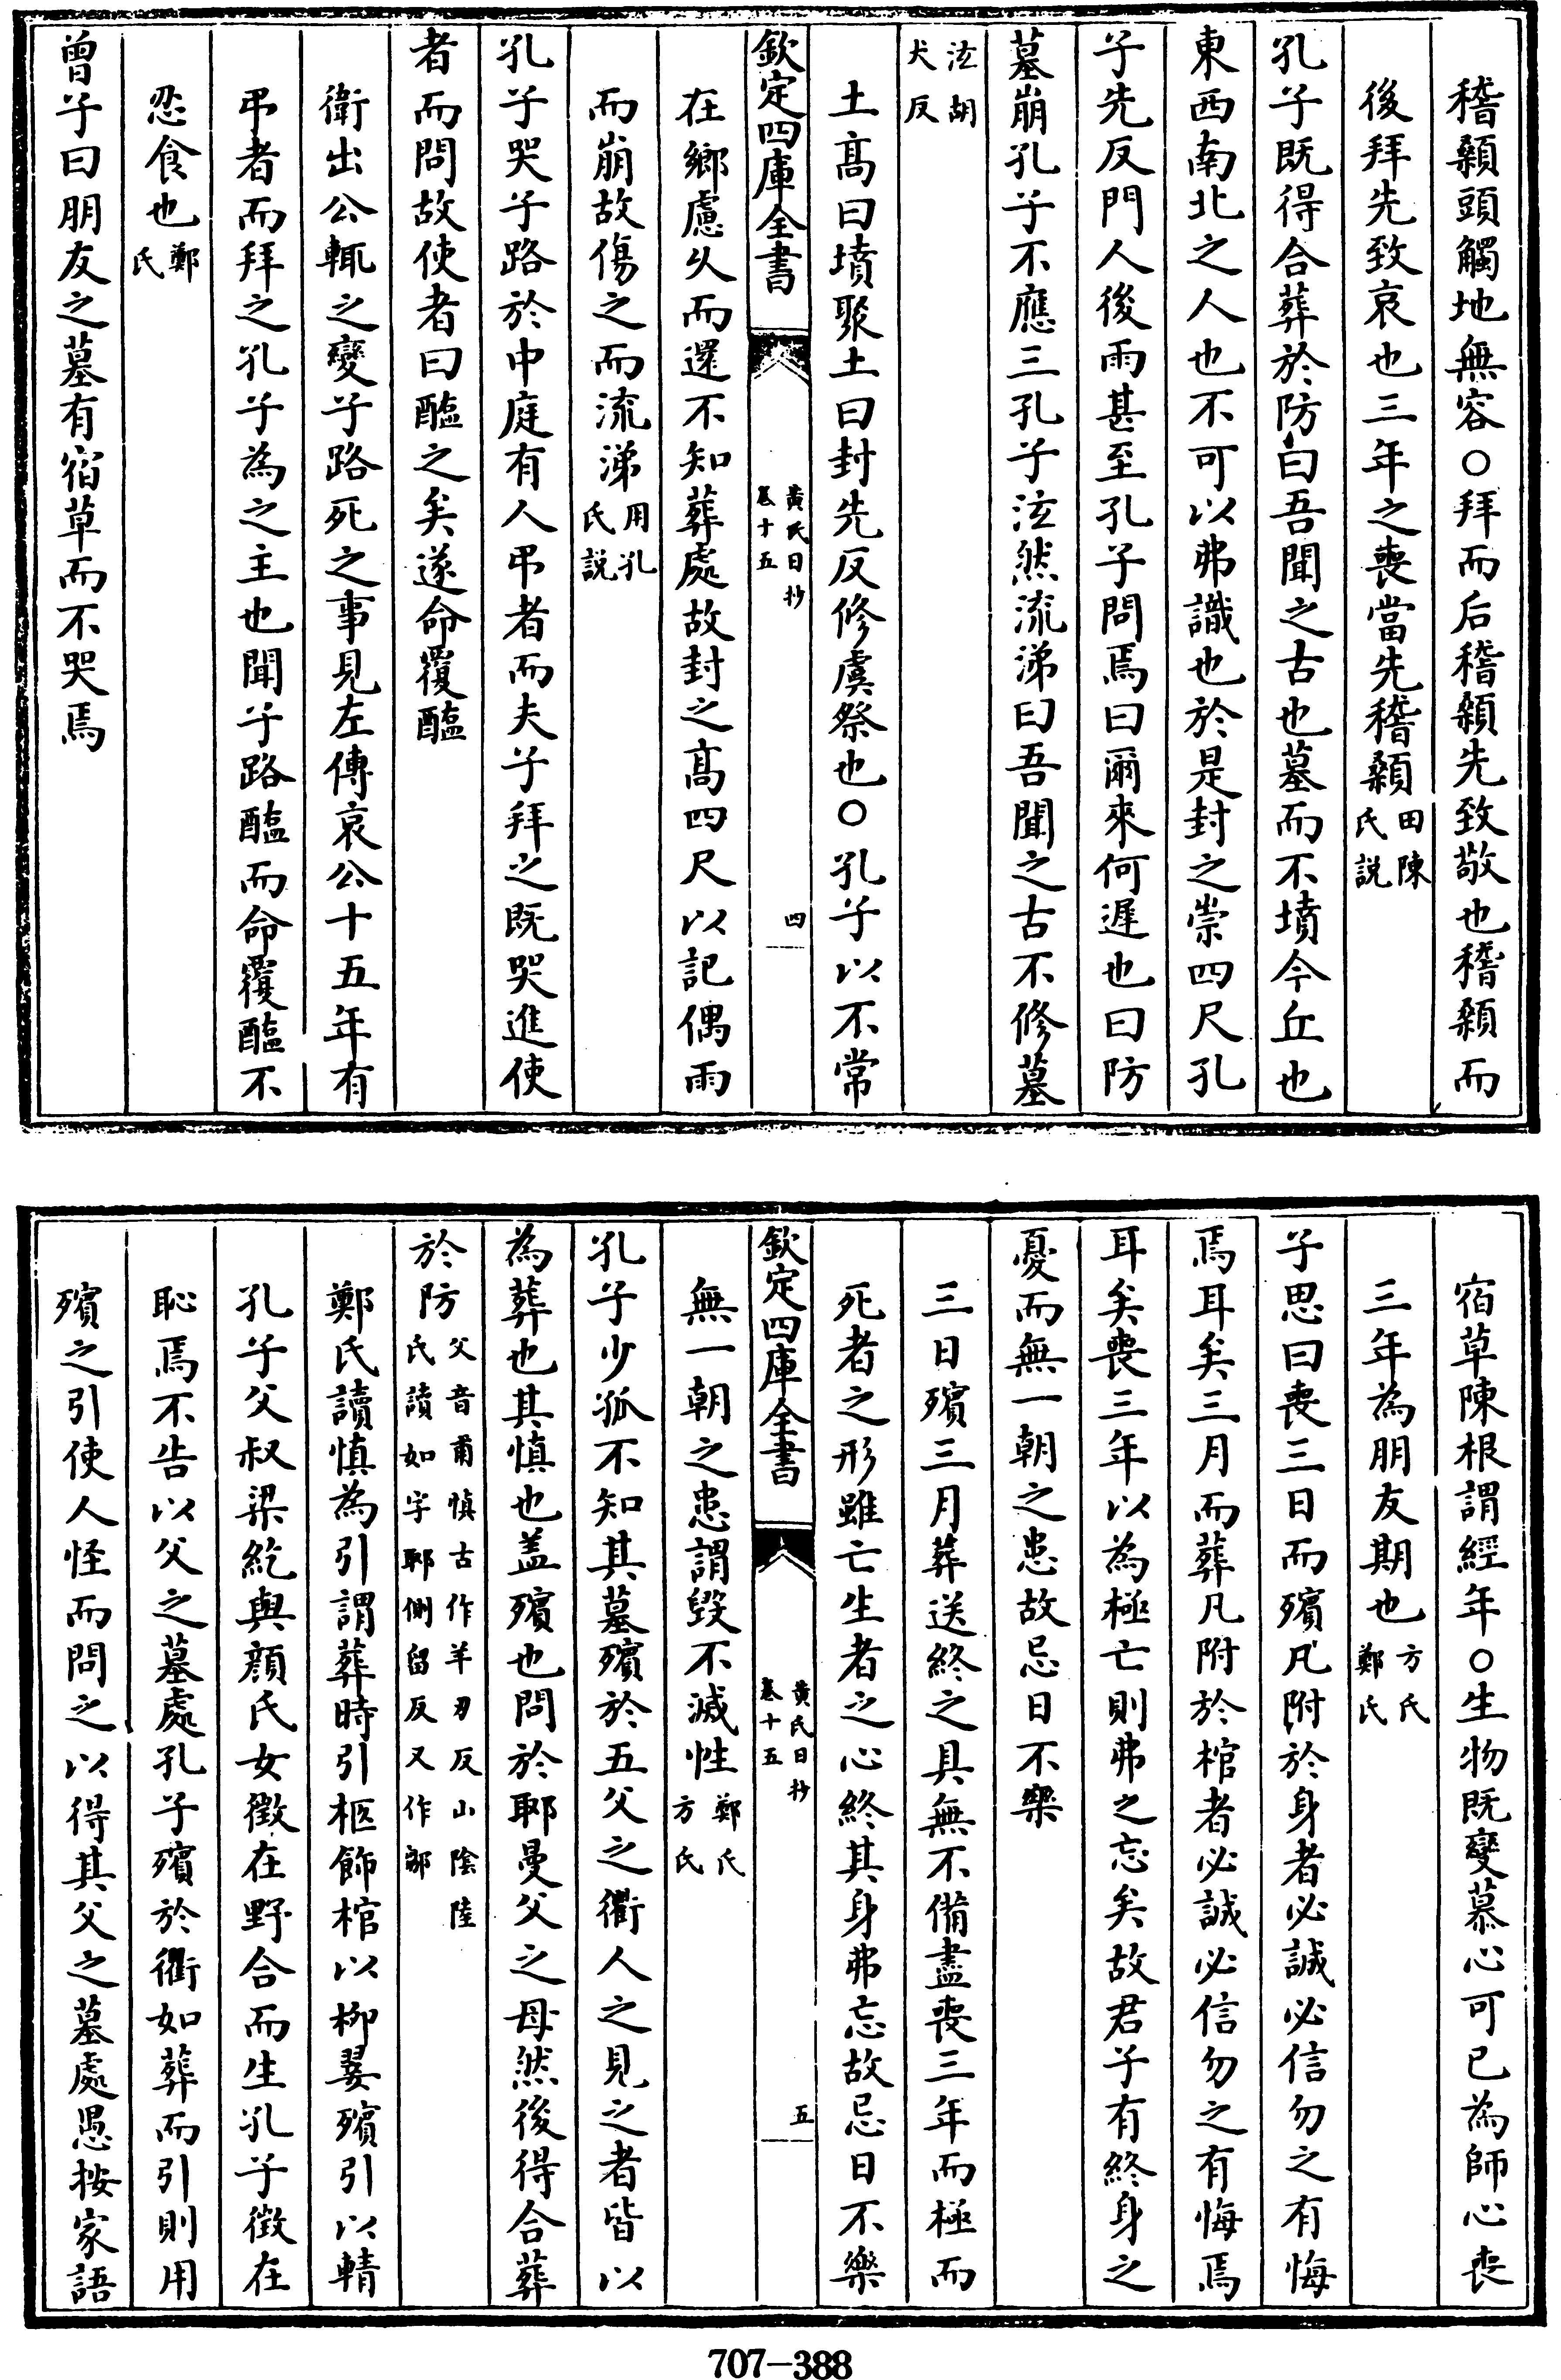 稽顙頭觸地無容○拜而后稽顙先致敬也稽顙而
後拜先致哀也三年之喪當先稽顙田陳氏説
孔子既得合葬於防曰吾聞之古也墓而不墳今丘也
東西南北之人也不可以弗識也於是封之崇四尺孔
子先反門人後雨甚至孔子問焉曰爾來何遲也曰防
墓崩孔子不應三孔子泫然流涕曰吾聞之古不修墓
泫胡犬反
土髙曰墳聚土曰封先反修虞祭也○孔子以不常
欽定四庫全書
黄氏日抄
卷十五
四
在鄉慮乆而還不知葬處故封之髙四尺以記偶雨
而崩故傷之而流涕用孔氏説
孔子哭子路於中庭有人弔者而夫子拜之既哭進使
者而問故使者曰醢之矣遂命覆醢
衛出公輒之變子路死之事見左傳哀公十五年有
弔者而拜之孔子為之主也聞子路醢而命覆醢不
忍食也鄭氏
曾子曰朋友之墓有宿草而不哭焉
宿草陳根謂經年○生物既變慕心可已為師心喪
三年為朋友期也方氏鄭氏
子思曰喪三日而殯凡附於身者必誠必信勿之有悔
焉耳矣三月而葬凡附於棺者必誠必信勿之有悔焉
耳矣喪三年以為極亡則弗之忘矣故君子有終身之
憂而無一朝之患故忌日不樂
三日殯三月葬送終之具無不備盡喪三年而極而
死者之形雖亡生者之心終其身弗忘故忌日不樂
欽定四庫全書
黄氏日抄
卷十五
五
無一朝之患謂毀不滅性鄭氏方氏
孔子少孤不知其墓殯於五父之衢人之見之者皆以
為葬也其慎也盖殯也問於郰曼父之母然後得合葬
於防父音甫慎古作羊刃反山陰陸氏讀如字郰側留反又作鄹
鄭氏讀慎為引謂葬時引柩飾棺以柳翣殯引以輤
孔子父叔梁紇與顔氏女徵在野合而生孔子徵在
恥焉不告以父之墓處孔子殯於衢如葬而引則用
殯之引使人怪而問之以得其父之墓處愚按家語
707-388